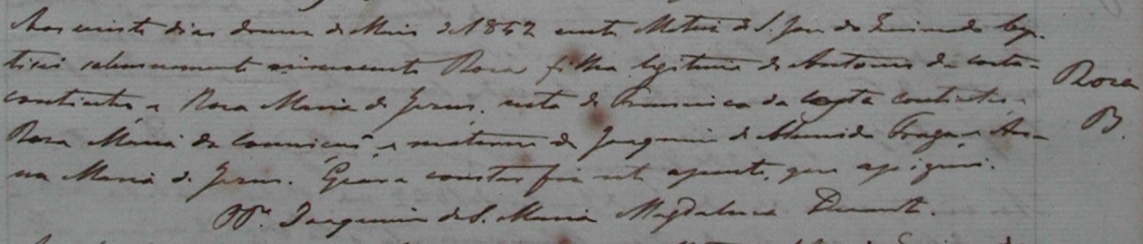 Aos vinte dias do mez de Maio de 1852 nesta Matriz de S. Jose do baptisei solemnemente innocente Rosa filha legitima de Antonio da Costa
e Rosa Maria de Jesus, neta de Francisco da Costa Rosa
Rosa Maria da Conceição, e materna de Joaquim de Almeida Fraga e An- B.
na Maria de Jesus. E para constar fiz este assento, que assignei.
Joaquim de S. Maria Magdalena Duarte.